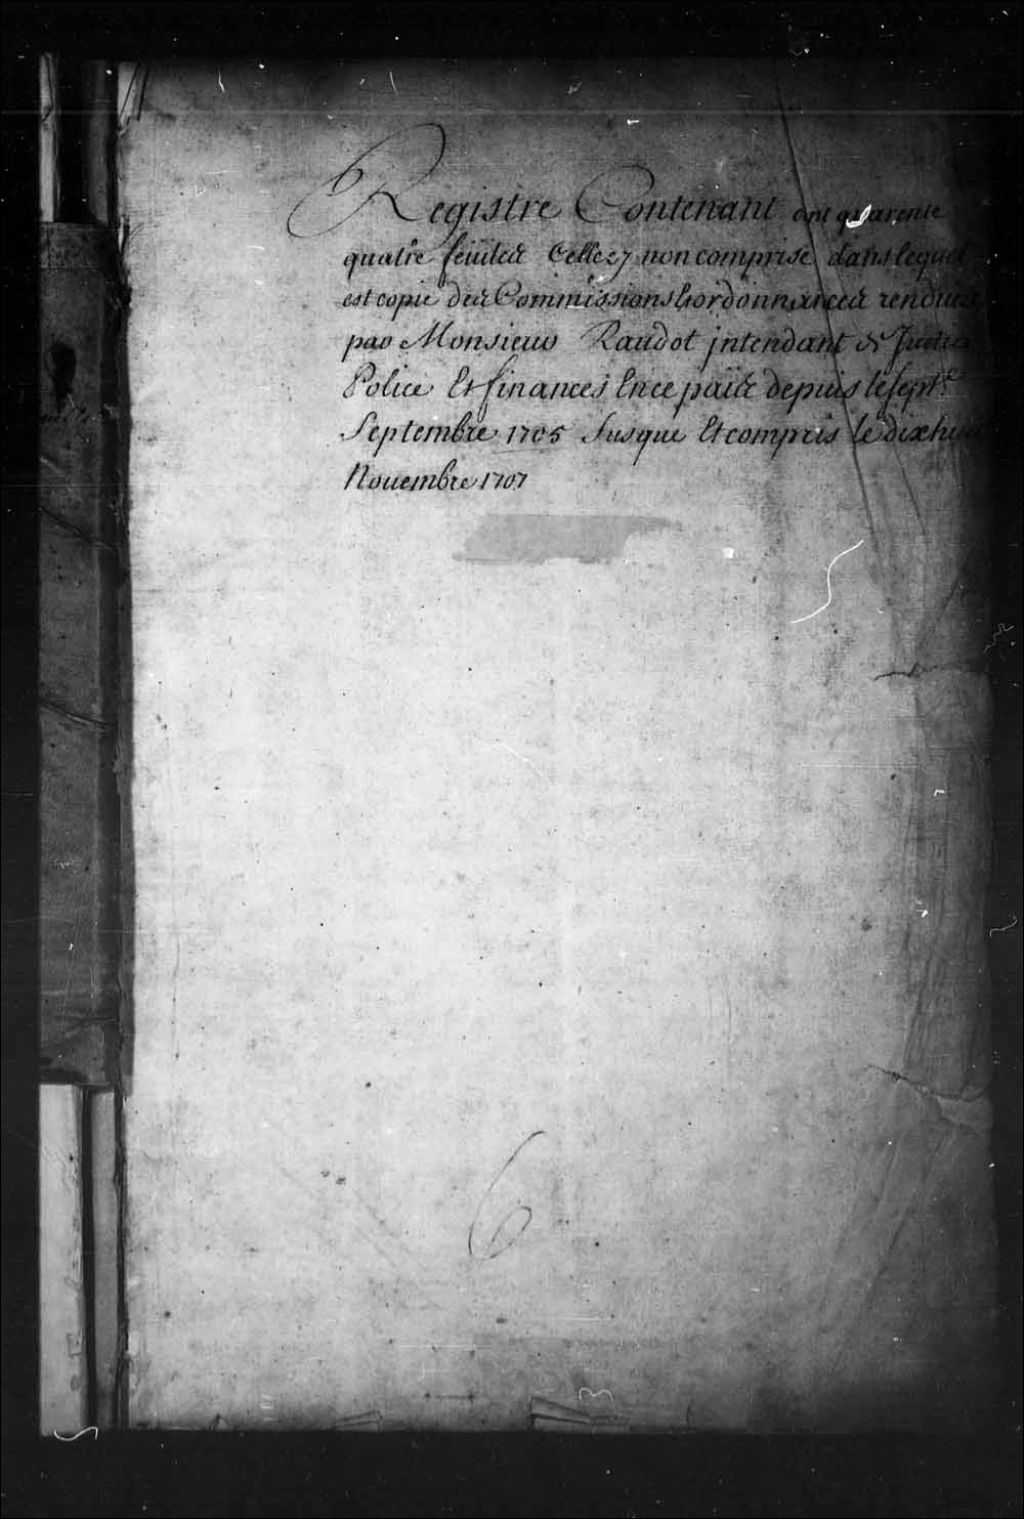 Registre Contenant cent quarente
quatre feüilles Celle cy non comprise dans lequel
est copie des Commissions & ordonnances rendues
par Monsieur Raudot jntendant de Justice
Police Et finances En ce païs depuis le sept.e
Septembre 1705 Jusque Et compris le dixhuit
Nouembre 1707
6